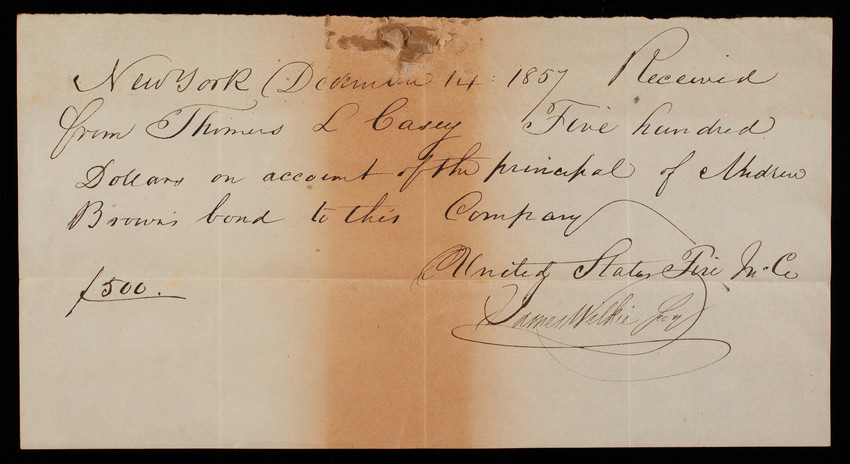 New York December 14 : 1857 Received
from Thomas L Casey Five hundred
Dollars on account of the principal of Andrew
Brown's bond to this Company
United States Fire In. Co
$500.
James Wilkie Secy